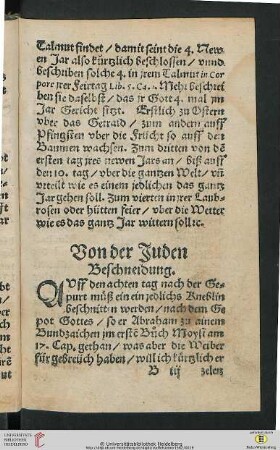 Talmut findet / damit seint die 4. New-
en Jar also kürtzlich beschlossen / vnnd
beschriben solche 4. in jrem Talmut in Cor
pore jrer Feirtag Lib. 5. Ca. 1. Mehr beschrei
ben sie daselbst / das jr Gott 4. mal jm
Jar Gericht sitzt. Erstlich zu Ostern
vber das Getraid / zum andern auff
Pfingsten vber die Frücht so auff den
Baumen wachsen. Zum dritten von dē
ersten tag jres newen Jars an / biß auff
den 10. tag / vber die gantzen Welt / vñ
vrteilt wie es einem jedlichen das gantz
Jar gehen soll. Zum vierten in jrer Laub-
rosen oder hütten feier / vber die Wetter
wie es das gantz Jar wittern soll ꝛc.
Von der Juden
Beschneidung.
AVff den achten tag nach der Ge-
purt müß ein ein jedlichs Kneblin
beschnitten werden / nach dem Ge
pot Gottes / so er Abraham zu ainem
Bundzaichen im erste Büch Moysi am
17. Cap. gethan / was aber die Weiber
für gebreüch haben / will ich kürtzlich er
B iij zelen
UNIVERSITÄTS-
BIBLIOTHEK
HEIDELBERG
© Universitätsbibliothek Heidelberg